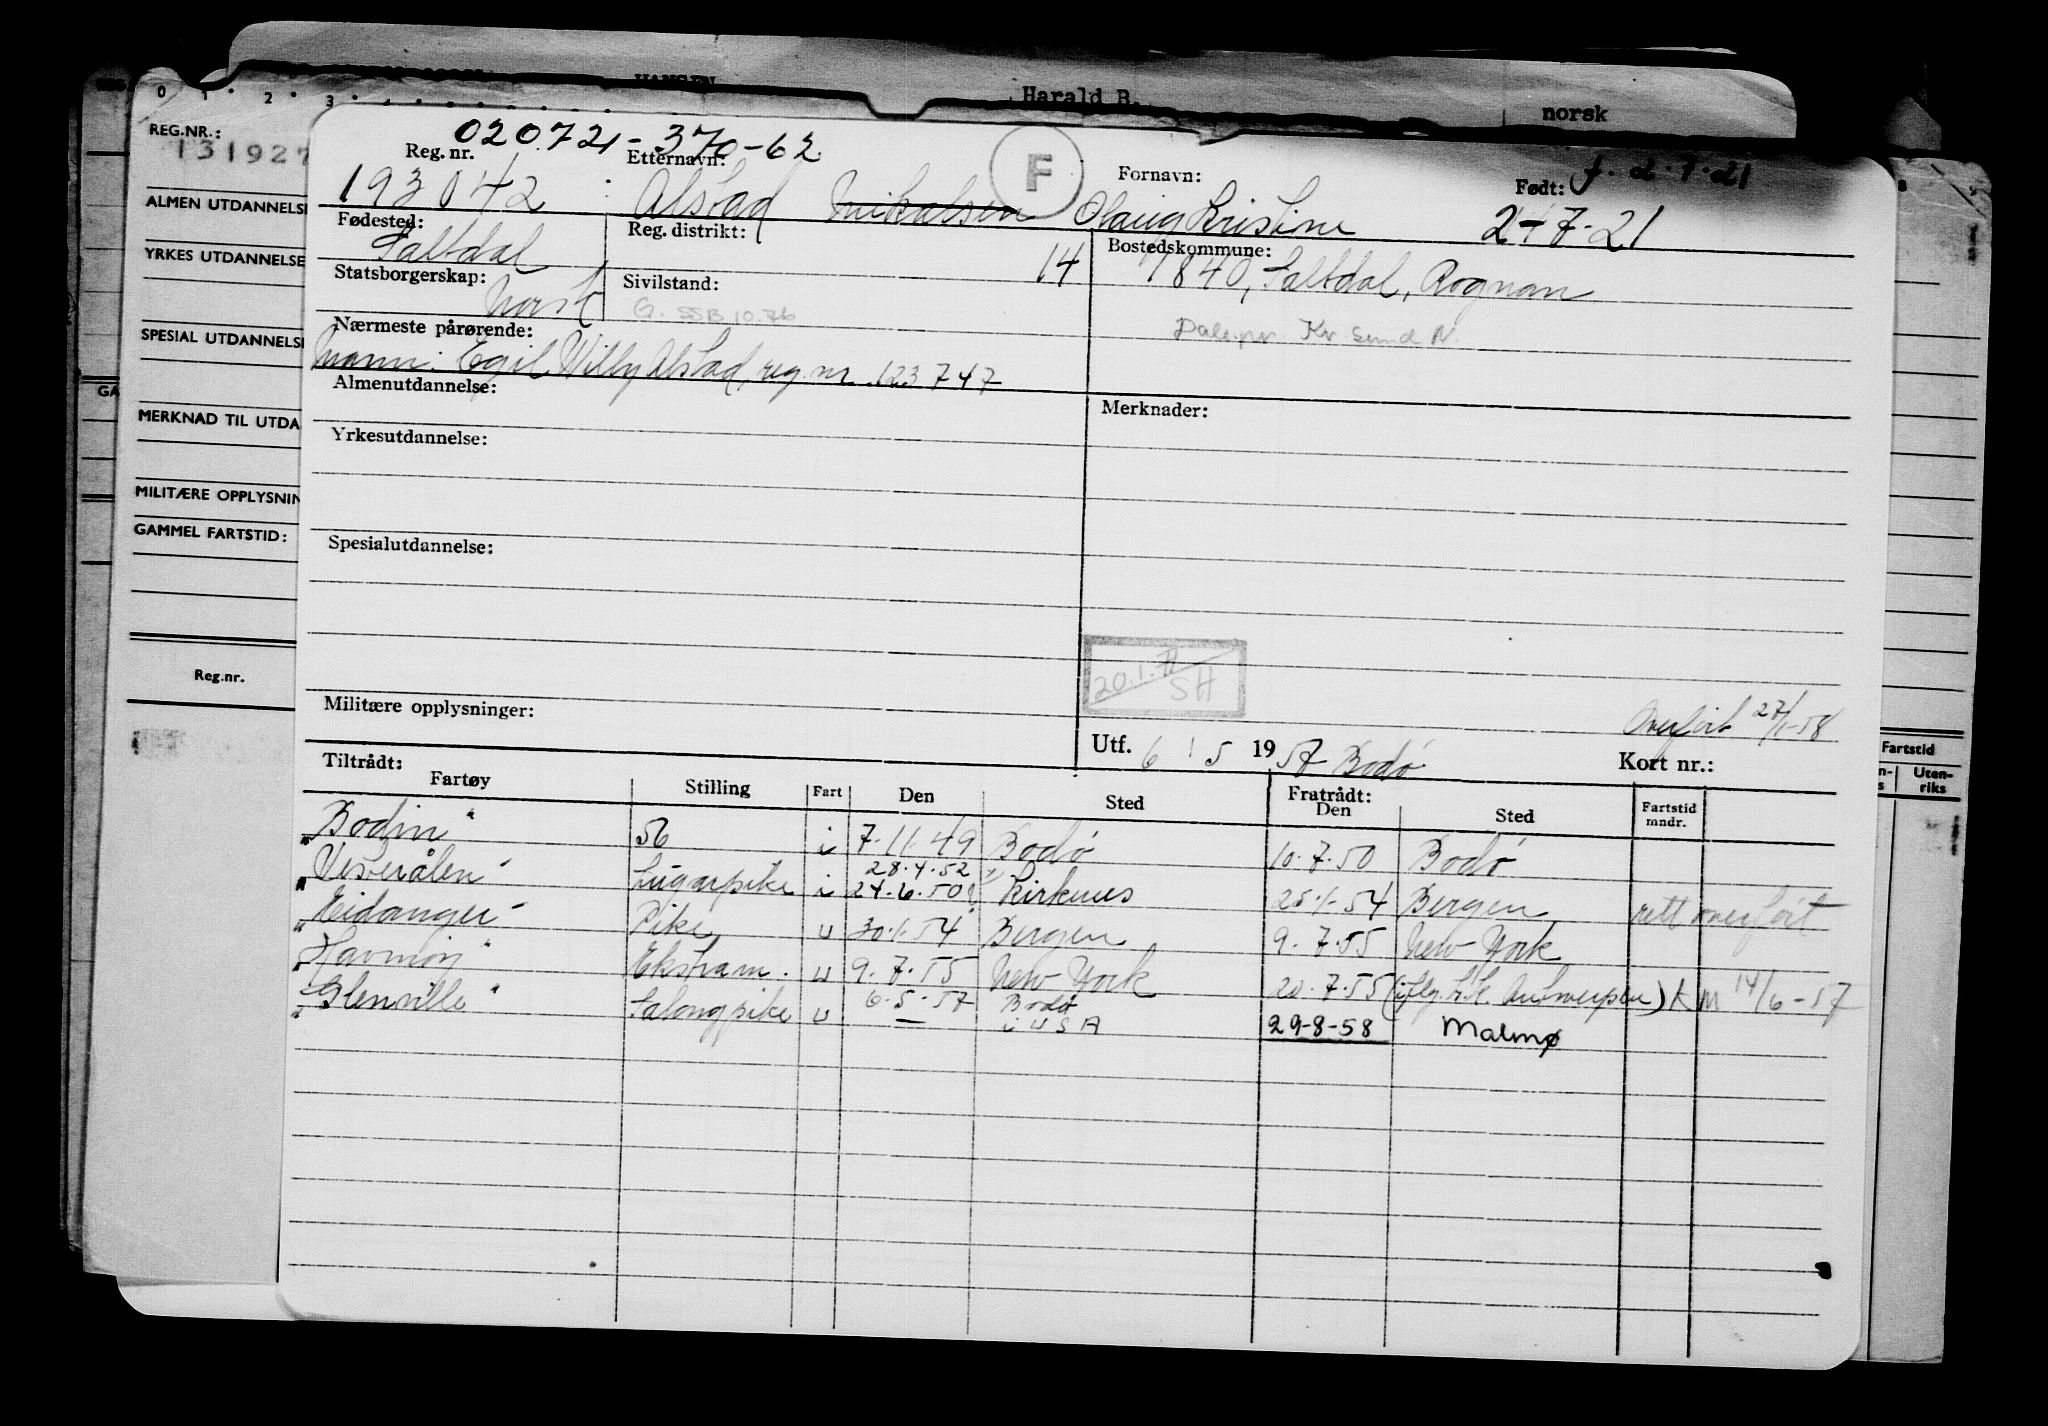 HANSEN
Harald B.
norsk
0 1 2 3 4
REG.NR.:
131927
ALMEN UTDANNELSE
YRKES UTDANNELSE
SPESIAL UTDANNELSE
GA
MERKNAD TIL UTDA
MILITÆRE OPPLYSNIN
GAMMEL FARTSTID:
Reg.nr.
020721-370-62
Reg. nr. Etternavn: F Fornavn: Født: f. 2.7.21
193042 Alstad Mikalsen Olaug Kristine 2-7-21
Fødested: Reg. distrikt: Bostedskommune:
Saltdal 14 1840, Saltdal, Rognan
Statsborgerskap: Sivilstand:
Norsk G. SSB 10.76
Nærmeste pårørende: Kr. sund N.
Mann: Egil Willy Alstad, reg. nr. 123747
Almenutdannelse: Merknader:
Yrkesutdannelse:
Spesialutdannelse:
20.1.71 SH
Militære opplysninger: Overført 27/1-58
Utf. 6 / 5 1957 Bodø Kort nr.:
Tiltrådt: Fartøy Stilling Fart Den Sted Fratrådt: Den Sted Fartstid mndr.
"Bodin" i 7.11.49 Bodø 10.7.50 Bodø
28.4.52
"Vesterålen" Lugarpike i 24.6.50 Kirkenes 25.1.54 Bergen rett overført
"Eidanger" Pike u 30.1.54 Bergen 9.7.55 New York
"Havmøy" Ekstram. u 9.7.55 New York 20.7.55 (iflg. h.k. Antwerpen) KM 14/6-57
6.5.57 Bodø
"Glenville" Salongpike u — i USA 29-8-58 Malmø
Fartstid
Uten-
riks